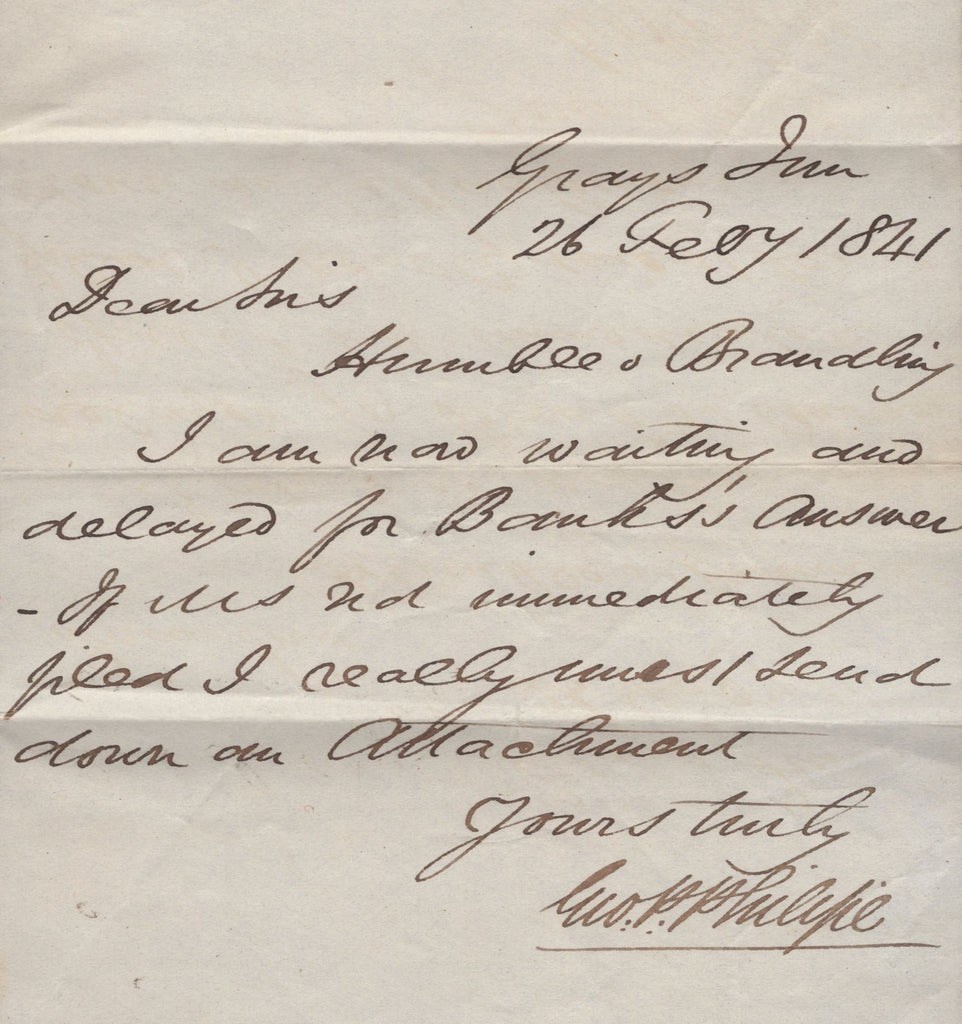 Grays Inn
26 Feby 1841
Dear Sirs
Humble v Brandling
I am now waiting and
delayed for Banks's Answer
- If it is not immediately
filed I really must send
down an Attachment
Yours truly
Geo. P. Philipe